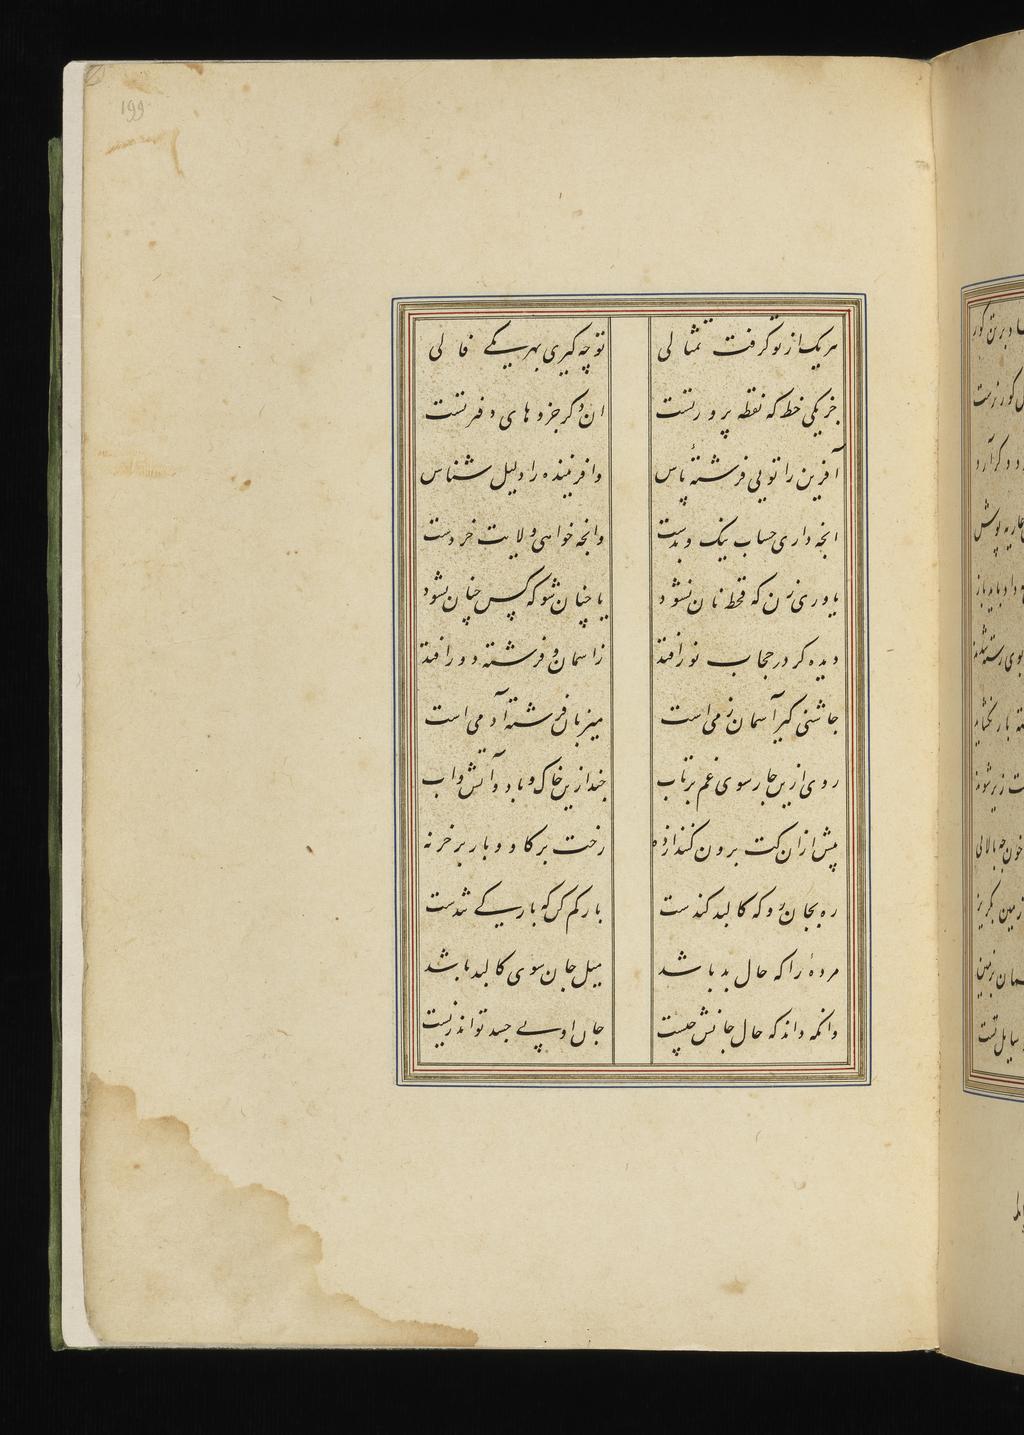 ۱۹۹
هر یک از تو گرفت تمثالی تو چه گیری بهر یکی فالی
جز یکی خط که نقطه پرورتست ان دگر جزوهای دفترتست
آفرین را تویی فرشتهٔ پاس وافریننده را دلیل شناس
انچه داری حساب نیک و بدست وانچه خواهی ولایت خردست
یا دری زن که قحط نان نشود یا چنان شو که کس چنان نشود
دیده کز در حجاب نور افتد زاسمان و فرشته دور افتد
چاشنی گیر آسمان زمی است میزبان فرشته آدمی است
روی ازین چارسوی غم برتاب چند ازین خاک و باد و آتش و اب
پیش ازان کت برون کنند از ده رخت بر کاو و بار بر خر نه
ره بجان رو که کالبد کندست بار کم کن که بارکے تندست
مردهٔ را که حال بد باشد میل جان سوی کالبد باشد
وانکه داند که حال جانش چیست جان او بے جسد تواند زیست